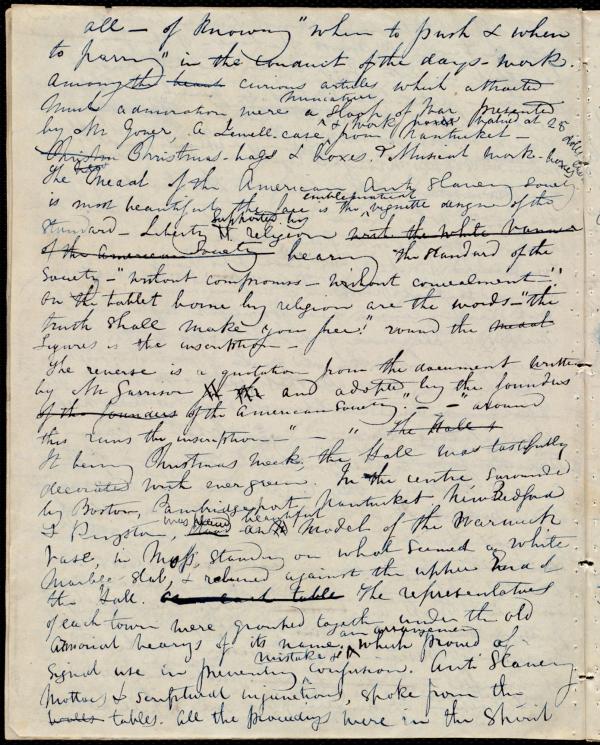 all — of knowing "when to push & when
to parry" in the conduct of the days-work.
Among the curious articles which attracted
much admiration were a miniature Sloop of War presented
by Mr Gover, A Jewell-case, & work boxes from Nantucket — valued at 25 dollars
Christmas-bags & boxes. & Musical work-boxes
The new Medal of the American Anti Slavery Society
is most beautiful, the face is the emblematical vignette of the
Standard — Liberty supported by religion with the white banner
of the American Society bearing the standard of the
Society — "without compromise — without concealment —"
On the tablet borne by religion are the words — "the
truth shall make you free!" round the medal
figures is the inscription —
The reverse is a quotation from the document written
by Mr Garrison and adopted by the founders
of the founders of the American Society." — " around
this runs the inscription — " — " The Hall
It being Christmas week, the Hall was tastefully
decorated with evergreen. In the centre, surrounded
by Boston, Cambridgeport, Nantucket New Bedford
& Kingston, was placed a beautiful model of the Warwick
Vase, in Moss, standing on what seemed a white
Marble Slab, & relieved against the upper end of
the Hall. on each table The representatives
of each town were grouped together under the old
armorial bearings of its name, an arrangement which proved of
signal use in preventing mistake & confusion. Anti Slavery
Mottoes & scriptural injunctions, spoke from the
walls tables. All the proceedings were in the Spirit